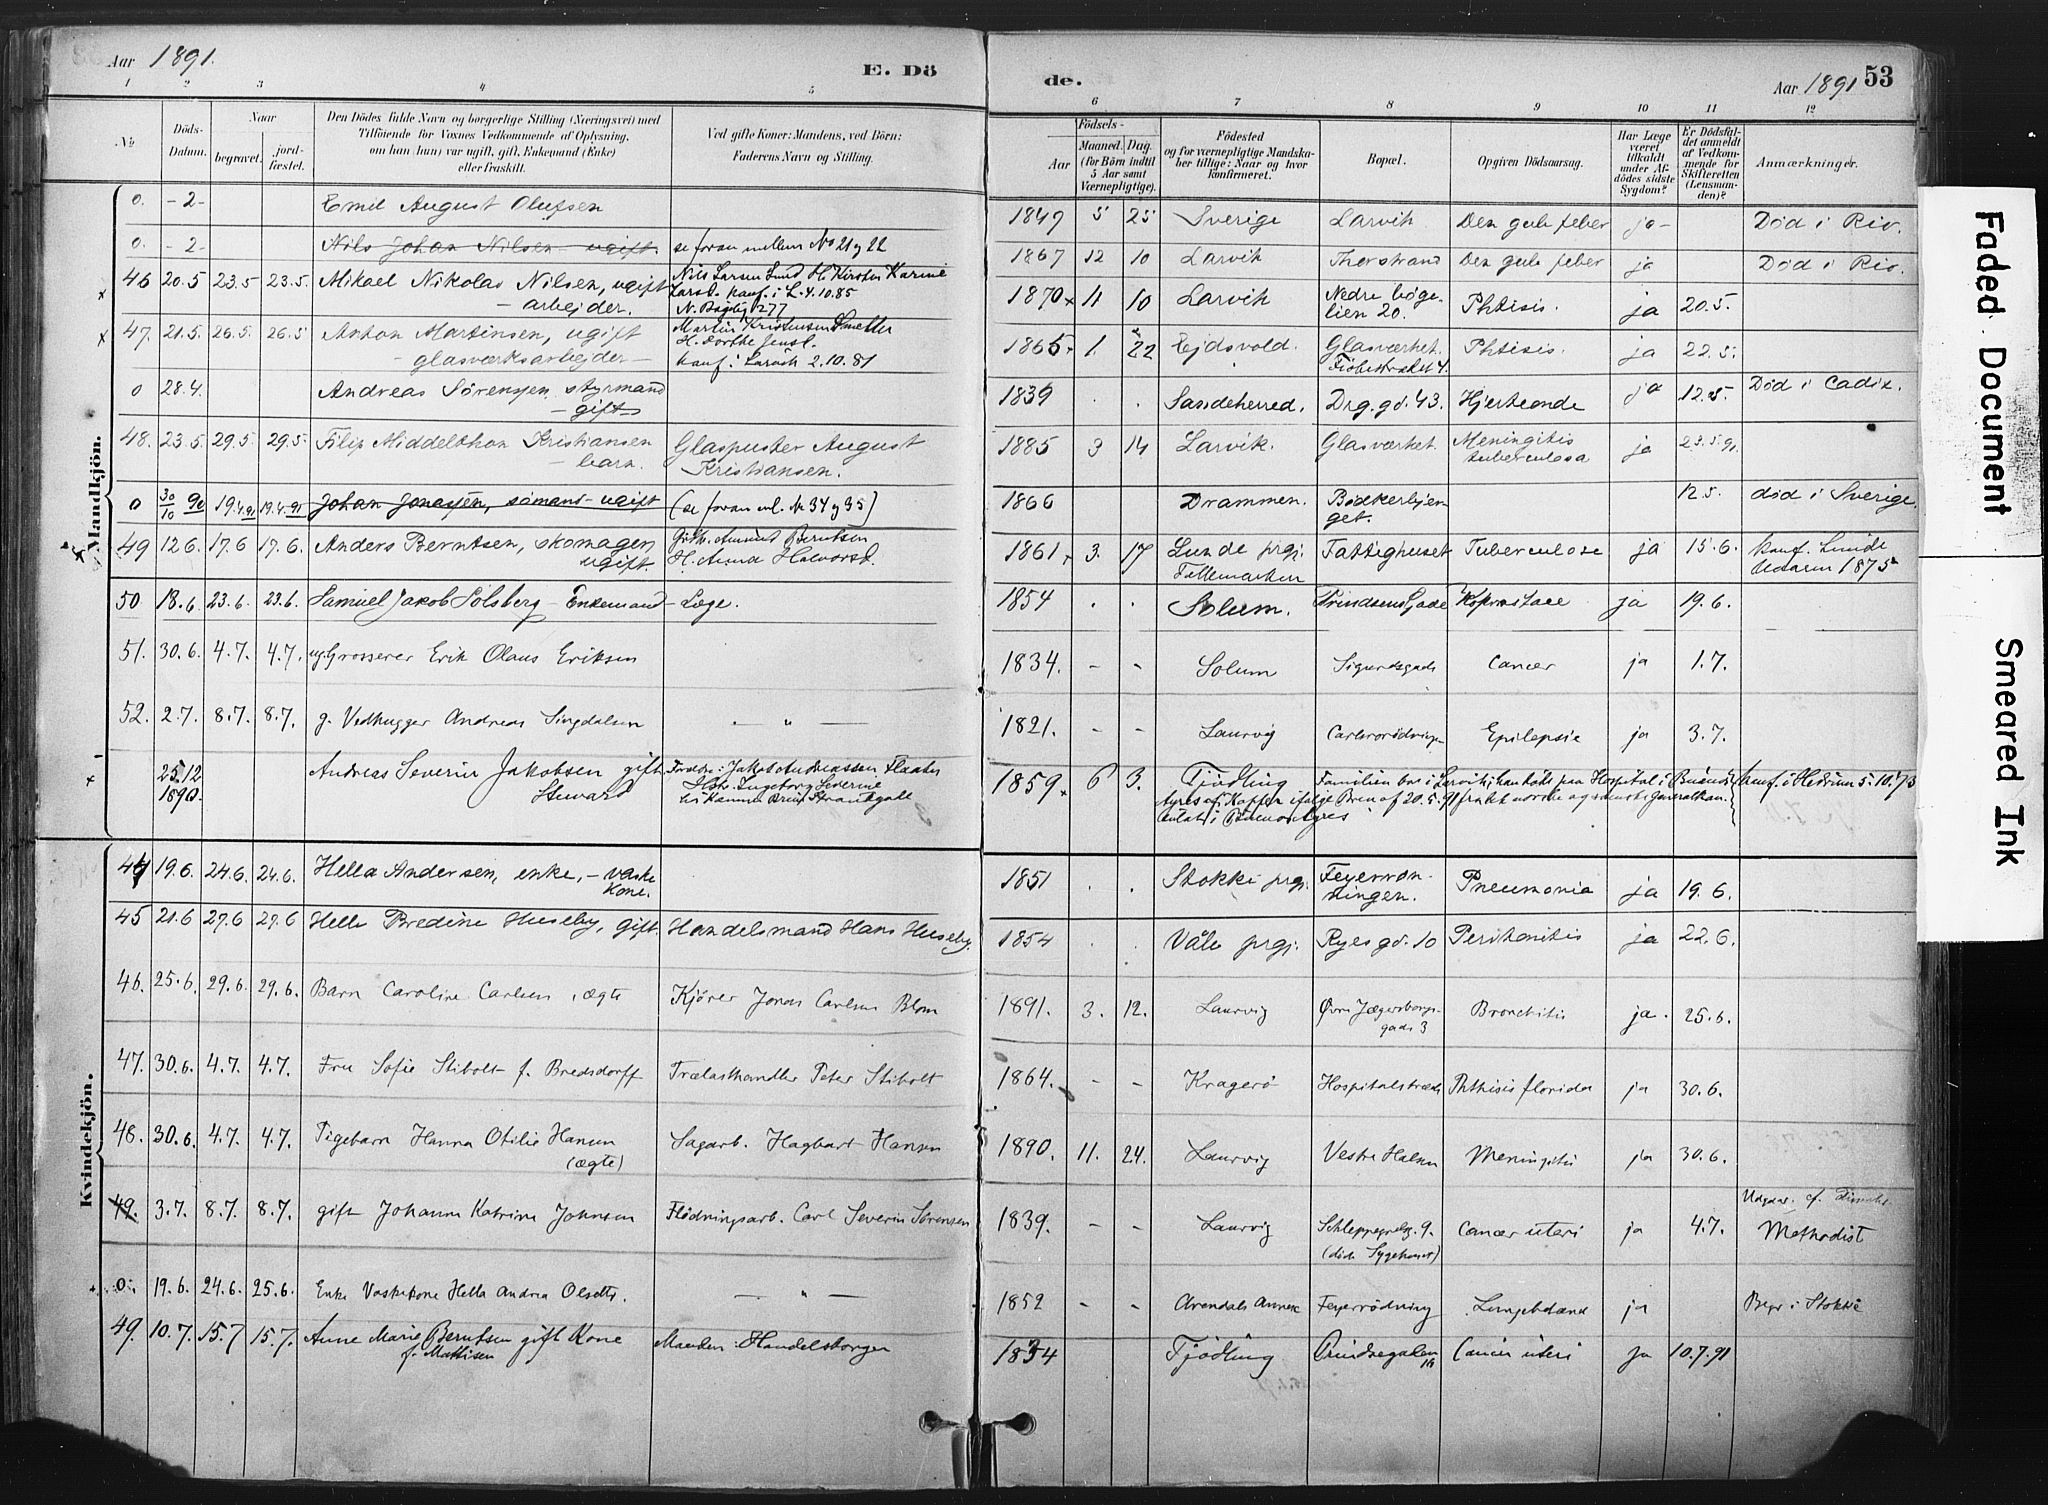 Aar 1891.
E. Dö
1 2 3 4 5
№
Döds-
Datum.
Naar
begravet.
jord-
fæstet.
Den Dödes fulde Navn og borgerlige Stilling (Næringsvei) med
Tilföiende for Voxnes Vedkommende af Oplysning,
om han (hun) var ugift, gift, Enkemand (Enke)
eller fraskilt.
Ved gifte Koner: Mandens, ved Börn:
Faderens Navn og Stilling.
Mandkjön.
0. - 2 - Emil August Olufsen
0. - 2 Nils Johan Nilsen - ugift. se foran mellem No 21 og 22
46 20.5 23.5 23.5 Mikael Nikolai Nilsen, ugift
- arbejder.
Nils Larsen Lund H. Kirsten Karine
Larsd. konf. i L. 4.10.85
47. 21.5 26.5 26.5 Anton Martinsen, ugift
- glasværksarbejder -
Martin Kristensen
H. Dorthe Jensd.
konf. i Larvik 2.10.81
0 28.4. Andreas Sørensen, styrmand
- gift
48. 23.5 29.5 29.5 Filip Middelthon Kristiansen
- barn.
Glaspuster August
Kristiansen.
0 30/10 90 19.4.91 19.4.91 Johan Jonassen, sømand - ugift (se foran ml. Nr 34 og 35)
49 12.6. 17.6 17.6. Anders Berntsen, skomager,
ugift.
Berntsen
H. Anna Halvorsd.
50 18.6. 23.6. 23.6. Samuel Jakob Solsberg - Enkemand - Læge.
51. 30.6. 4.7. 4.7. ug. Grosserer Erik Olaus Eriksen
52. 2.7. 8.7. 8.7. g. Vedhugger Andreas Singdalsen — " —
25.12
1890.
Andreas Severin Jakobsen gift
Steward
Foreldre: Jakob Andreassen
Ingeborg Severine
Kvindekjön.
44 19.6. 24.6. 24.6. Hella Andersen, enke, - vaske
kone.
45 21.6 27.6 27.6 Helle Bredine Huseby, gift. Handelsmand Hans Huseby.
46. 25.6. 29.6. 29.6. Barn Caroline Carlsen, ægte Kjører Jonas Carlsen Blom
47. 30.6. 4.7. 4.7. Fru Sofie Stibolt f. Bredsdorff Trælasthandler Peter Stibolt
48. 30.6. 4.7. 4.7. Pigebarn Hanna Otilie Hansen
(ægte)
Sagarb. Hagbart Hansen
49. 3.7. 8.7. 8.7. gift Johanne Katrine Johnsen Flødningsarb. Carl Severin Sørensen
0. 19.6. 24.6. 25.6. Enke Vaskekone Hella Andrea Olsdtr. — " —
49. 10.7. 15.7 15.7. Anne Marie Berntsen gift Kone
f. Mathisen
Manden: Handelsborger
de.
Aar 1891
53
6 7 8 9 10 11 12
Födsels-
Aar
Maaned. Dag.
(for Börn indtil
5 Aar samt
Værnepligtige).
Födested
og for værnepligtige Mandska-
ber tillige: Naar og hvor
konfirmeret.
Bopæl.
Opgiven Dödsaarsag.
Har Læge
været
tilkaldt
under Af-
dödes sidste
Sygdom?
Er Dödsfal-
det anmeldt
af Vedkom-
mende for
Skifteretten
(Lensman-
den)?
Anmærkninger.
1847 5 25 Sverige Larvik Den gule feber ja - Død i Rio.
1867 12 10 Larvik Thorstrand Den gule feber ja Død i Rio.
1870 11 10 Larvik Nedre bøge-
lien 20.
Phtisis. ja 20.5.
1865 1. 22 Ejdsvold. Glasværket. Phtisis. ja 22.5.
1839 . . Sandeherred. Drg.gd. 43. Hjerteonde ja 12.5. Død i Cadix.
1885 3 14 Larvik. Glasværket. Meningitis
tuberculosa
ja 23.5.91.
1866 Drammen. Bødkerbjer-
get.
12.5. død i Sverige.
1861 3. 17 Lunde prgj.
Tellemarken
Fattighuset Tuberculose ja 15.6. konf. Lunde
1875
1854 . . Solum. Prindsens Gade ja 19.6.
1834. - - Solum Sigurdsgade Cancer ja 1.7.
1821. - - Laurvig Epilepsie ja 3.7.
1859 6 3. Tjødling Familien bor i Larvik, han døde paa Hospital i Buenos
Ayres af Kopper ifølge Brev af 20.5.91 fra det norske og svenske Generalkon-
sulat i Buenos Ayres
konf. i Hedrum 5.10.73
1851 . . Stokke prgj. Feyerrøn-
ningen.
Pneumonia ja 19.6.
1854 . . Våle prgj. Ryes gd. 10 Peritonitis ja 22.6.
1891. 3. 12. Laurvig Øvre Jægersborgs-
gade 3
Bronchitis ja. 25.6.
1864. - - Kragerø Hospitalstræde Phthisis florida ja 30.6.
1890. 11. 24. Laurvig Vestre Halsen Meningitis ja 30.6.
1839. - - Laurvig Schleppegrelsg. 9.
(døde Sygehuset)
Cancer uteri ja 4.7.
Methodist
1852 - - Arendals Annex Feyerrødning Lungebetænd ja Begr. i Stokke
1834 Tjødling Prindsegaten
16
Cancer uteri ja 10.7.91
Faded Document
Smeared Ink